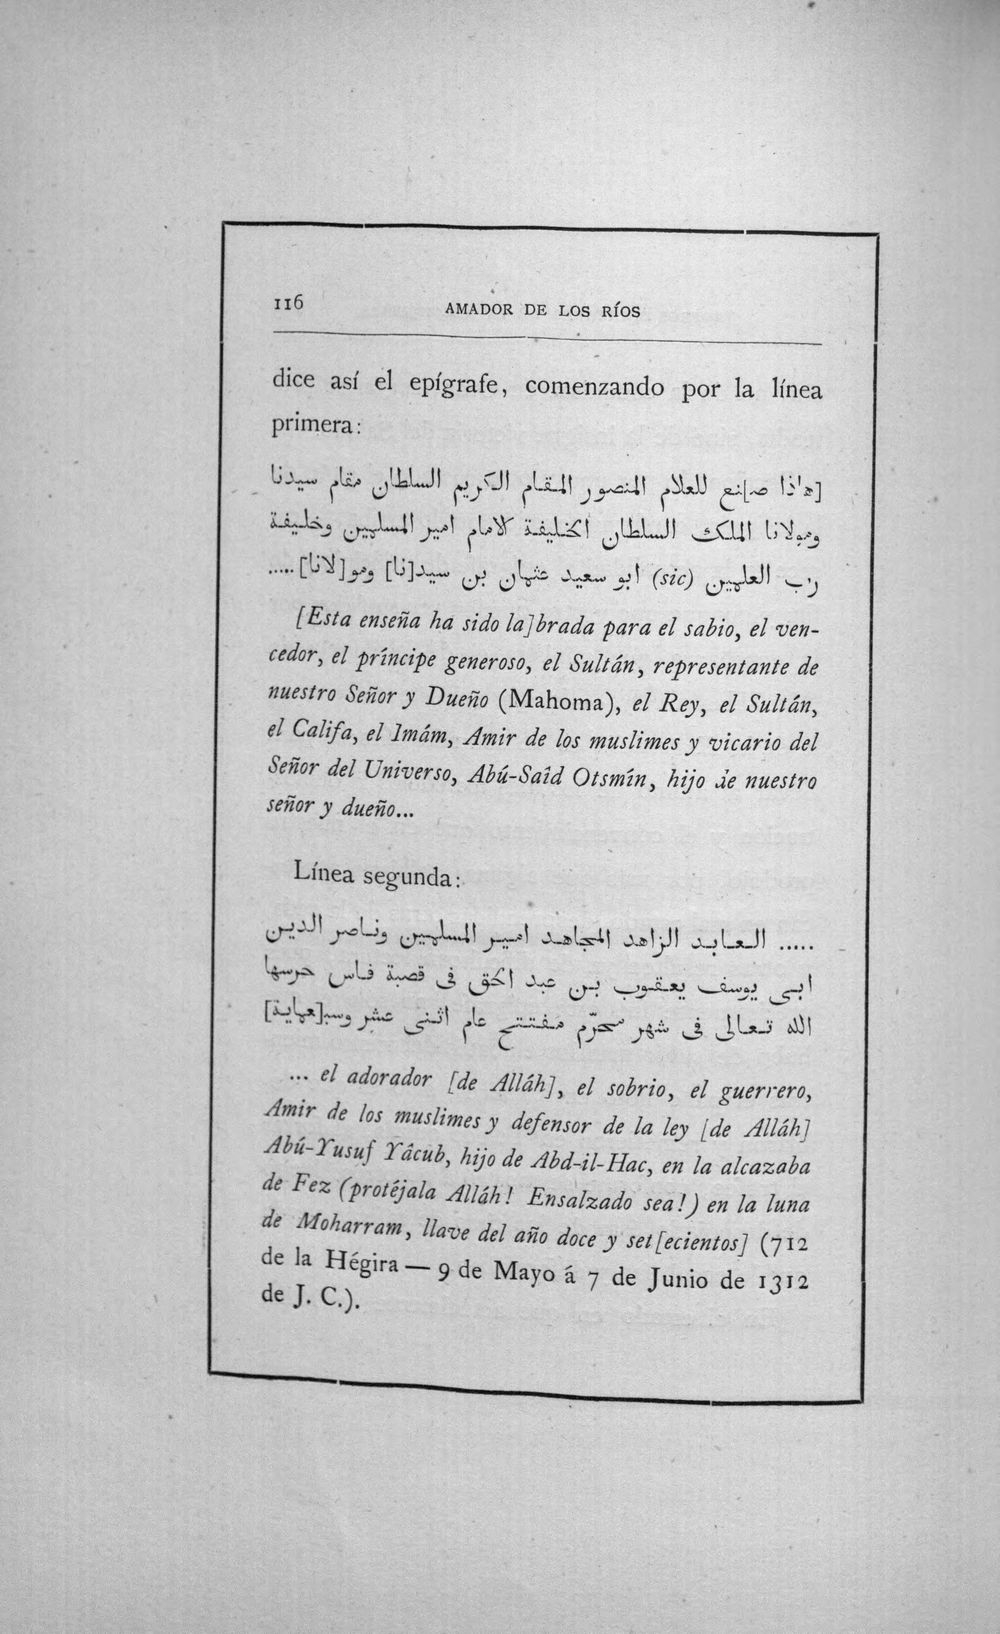 116
AMADOR DE LOS RÍOS
dice así el epígrafe, comenzando por la línea
primera:
[هاذا صـ]ـانع للعلام المنصور المقام الكريم السلطان مقام سيدنا
ومولانا الملك السلطان الخليفة الامام امير المسلمين وخليفة
رب العلمين (sic) ابو سعيد عثمان بن سيد[نا] ومو[لانا].....
[Esta enseña ha sido la]brada para el sabio, el ven-
cedor, el príncipe generoso, el Sultán, representante de
nuestro Señor y Dueño (Mahoma), el Rey, el Sultán,
el Califa, el Imám, Amir de los muslimes y vicario del
Señor del Universo, Abú-Saîd Otsmín, hijo de nuestro
señor y dueño...
Línea segunda:
..... العابد الزاهد المجاهد امير المسلمين وناصر الدين
ابى يوسف يعقوب بن عبد الحق فى قصبة فاس حرسها
الله تعالى فى شهر محرّم مفتتح عام اثنى عشر وسبـ[ـعماية]
... el adorador [de Alláh], el sobrio, el guerrero,
Amir de los muslimes y defensor de la ley [de Alláh]
Abú-Yusuf Yâcub, hijo de Abd-il-Hac, en la alcazaba
de Fez (protéjala Alláh! Ensalzado sea!) en la luna
de Moharram, llave del año doce y set[ecientos] (712
de la Hégira — 9 de Mayo á 7 de Junio de 1312
de J. C.).